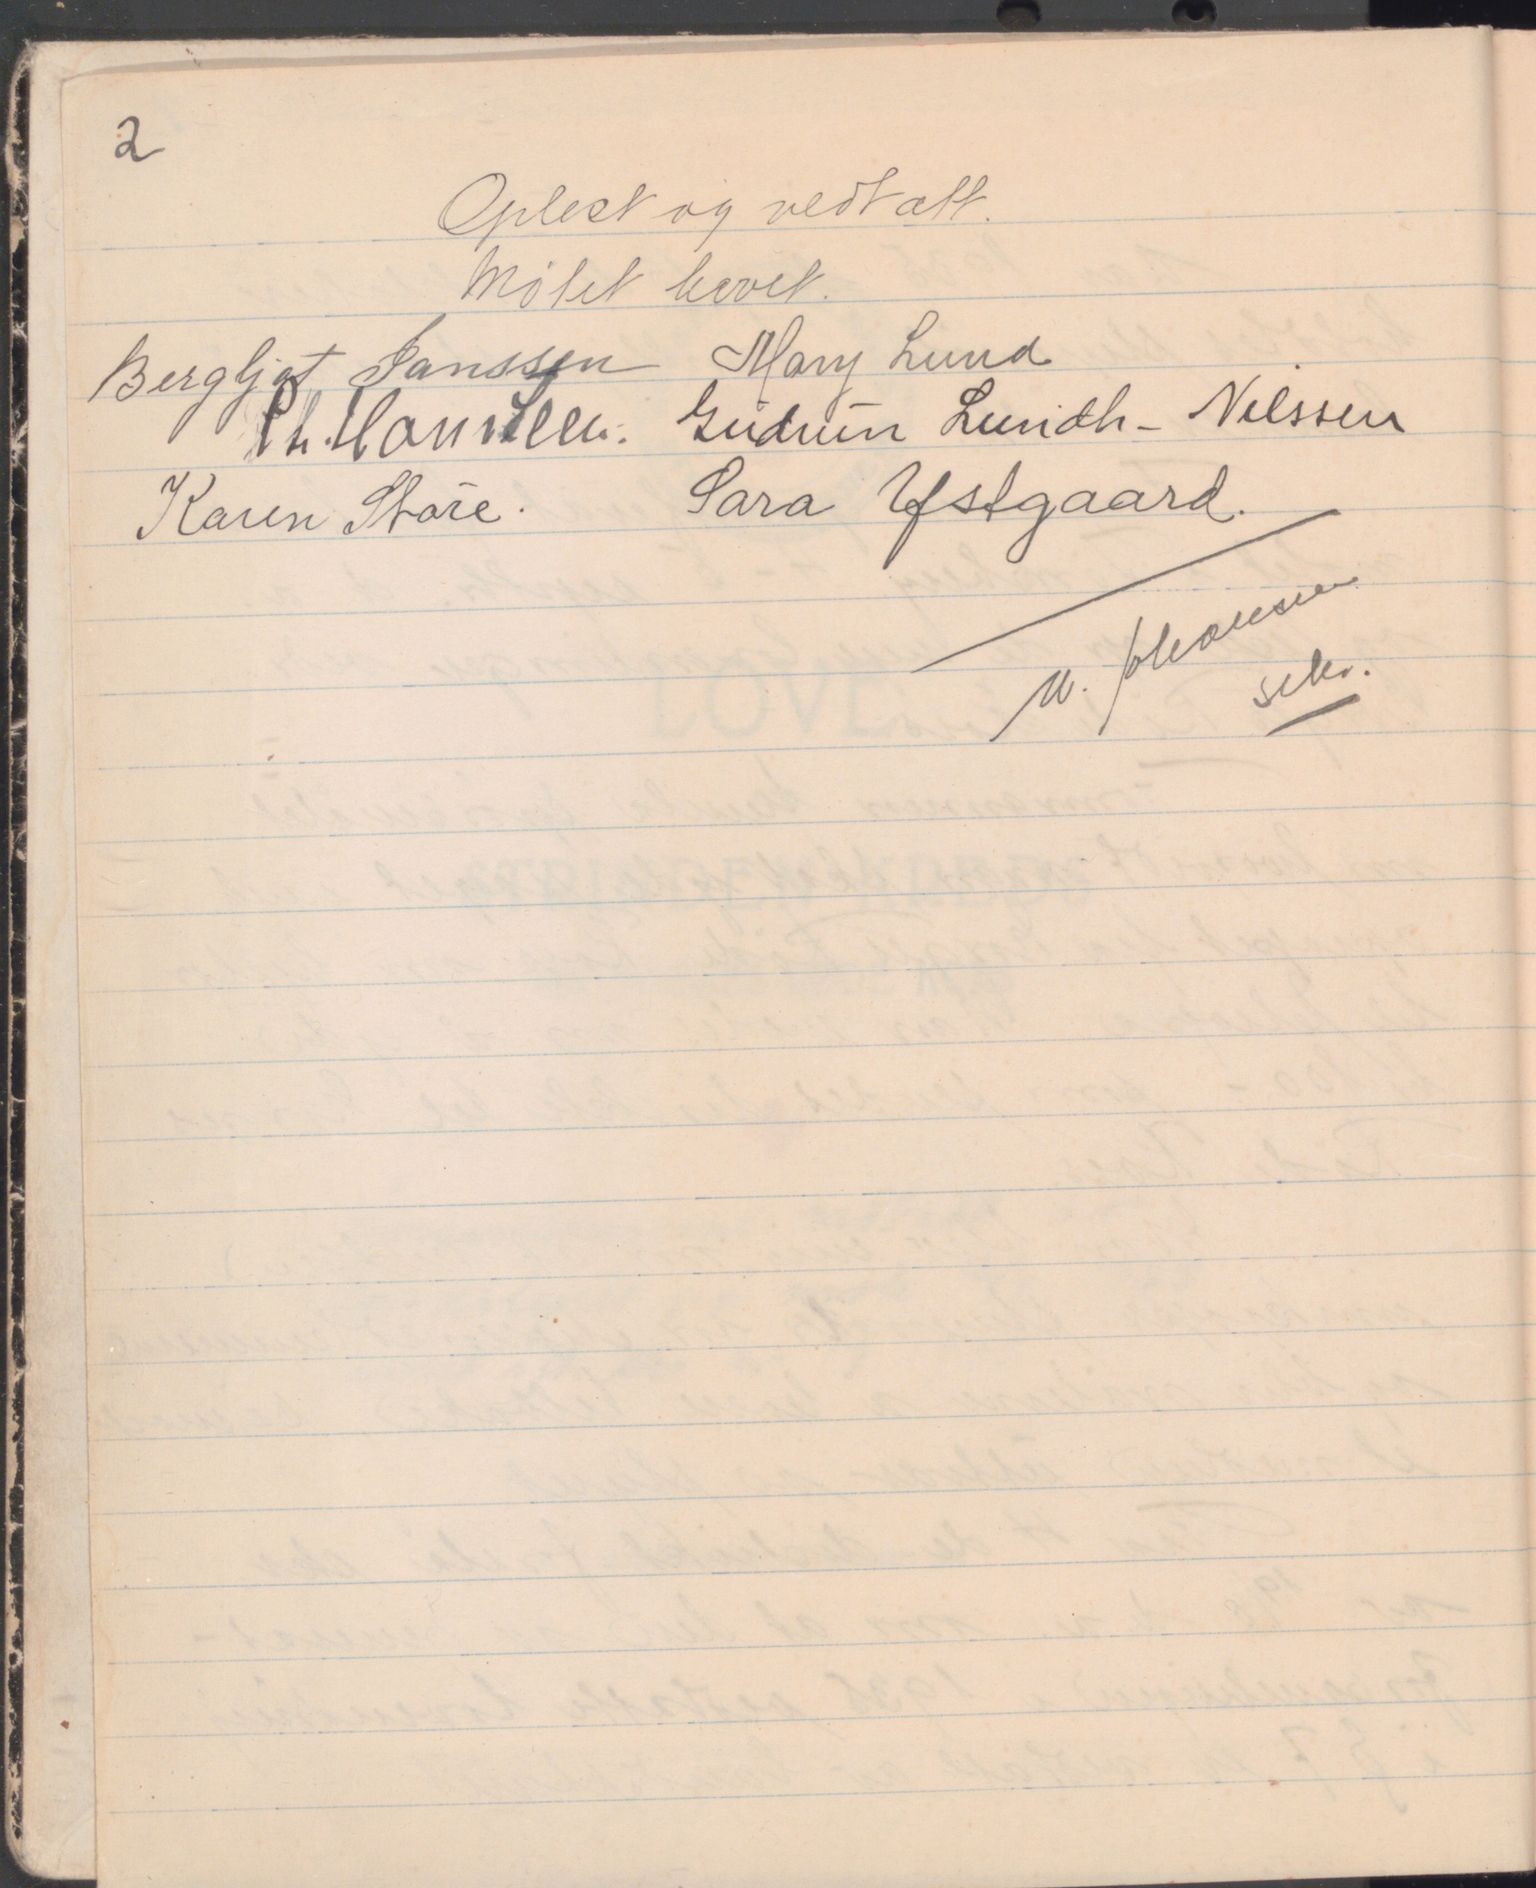 2
Oplest og vedtatt.
Møtet hevet.
Bergljot Janssen Mary Lund
Gudrun Lundh-Nilssen
Karen Støre. Sara Ystgaard.
M. Johansen
sekr.